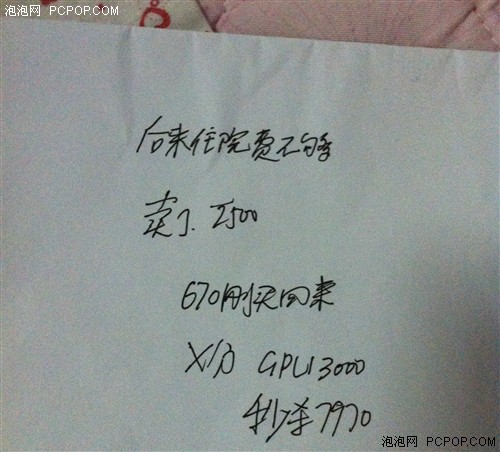 泡泡网 PCPOP.COM
后来住院费不够
卖了. 2500
670刚买回来
X分 GPU13000
秒杀7970
泡泡网 PCPOP.COM